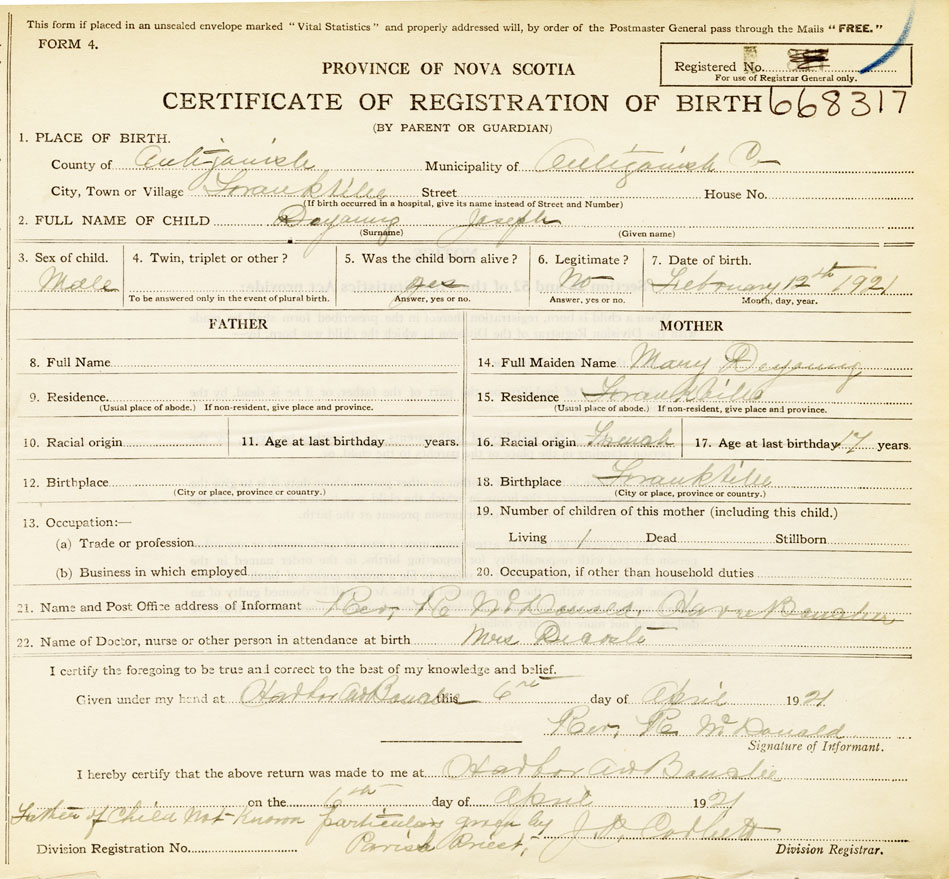 This form if placed in an unsealed envelope marked "Vital Statistics" and properly addressed will, by order of the Postmaster General pass through the Mails "FREE."
FORM 4.
Registered No.
For use of Registrar General only.
PROVINCE OF NOVA SCOTIA
CERTIFICATE OF REGISTRATION OF BIRTH 668317
(BY PARENT OR GUARDIAN)
1. PLACE OF BIRTH.
County of Antigonish Municipality of Antigonish Co
City, Town or Village Frankville Street House No.
(If birth occurred in a hospital, give its name instead of Street and Number)
2. FULL NAME OF CHILD Deyoung Joseph
(Surname) (Given name)
3. Sex of child. 4. Twin, triplet or other? 5. Was the child born alive? 6. Legitimate? 7. Date of birth.
Male yes No February 12th 1921
To be answered only in the event of plural birth. Answer, yes or no. Answer, yes or no. Month, day, year.
FATHER MOTHER
8. Full Name 14. Full Maiden Name Mary Deyoung
9. Residence. 15. Residence Frankville
(Usual place of abode.) If non-resident, give place and province. (Usual place of abode.) If non-resident, give place and province.
10. Racial origin 11. Age at last birthday years. 16. Racial origin French 17. Age at last birthday 17 years.
12. Birthplace 18. Birthplace Frankville
(City or place, province or country.) (City or place, province or country.)
13. Occupation:— 19. Number of children of this mother (including this child.)
(a) Trade or profession Living 1 Dead Stillborn
(b) Business in which employed 20. Occupation, if other than household duties
21. Name and Post Office address of Informant Rev, R McDonald,
22. Name of Doctor, nurse or other person in attendance at birth Mrs
I certify the foregoing to be true and correct to the best of my knowledge and belief.
Given under my hand at Harbor Au Bouche this 6th day of April 1921
Rev, R McDonald
Signature of Informant.
I hereby certify that the above return was made to me at Harbor Au Bouche
on the 6th day of April 1921
Father of Child Not Known particulars given by J. P. Corbett
Division Registration No. Parish Priest, Division Registrar.